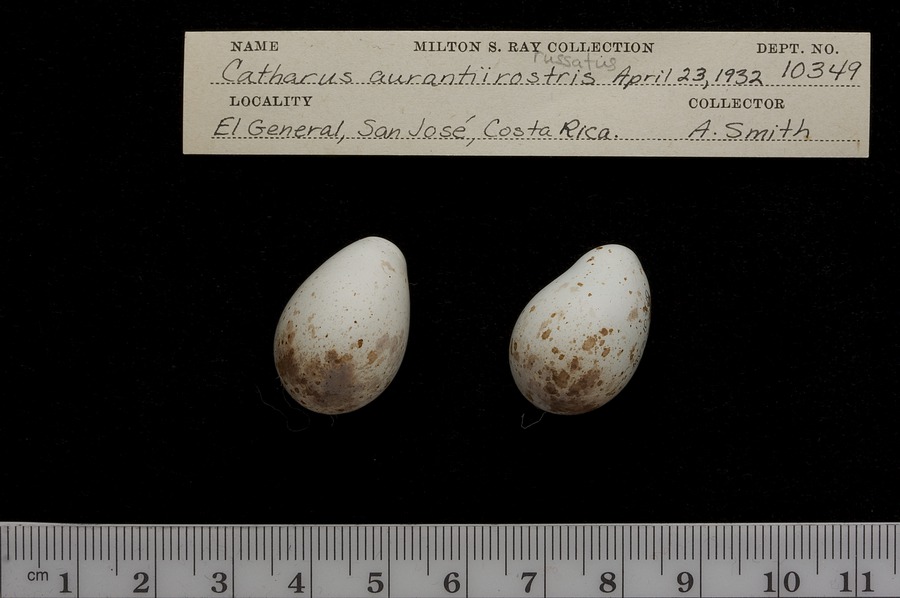 NAME MILTON S. RAY COLLECTION DEPT. NO.
russatus
Catharus aurantiirostris April 23, 1932 10349
LOCALITY COLLECTOR
El General, San José, Costa Rica. A. Smith
cm 1 2 3 4 5 6 7 8 9 10 11